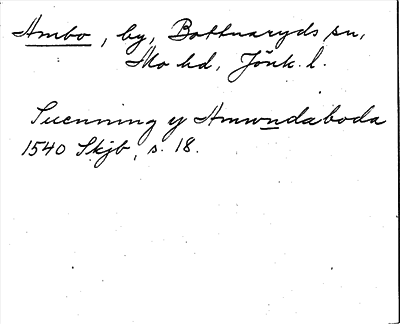 Ambo, by, Bottnaryds sn,
Mo hd, Jönk. l.
Suenning y Amwndaboda
1540 Skjb, s. 18.